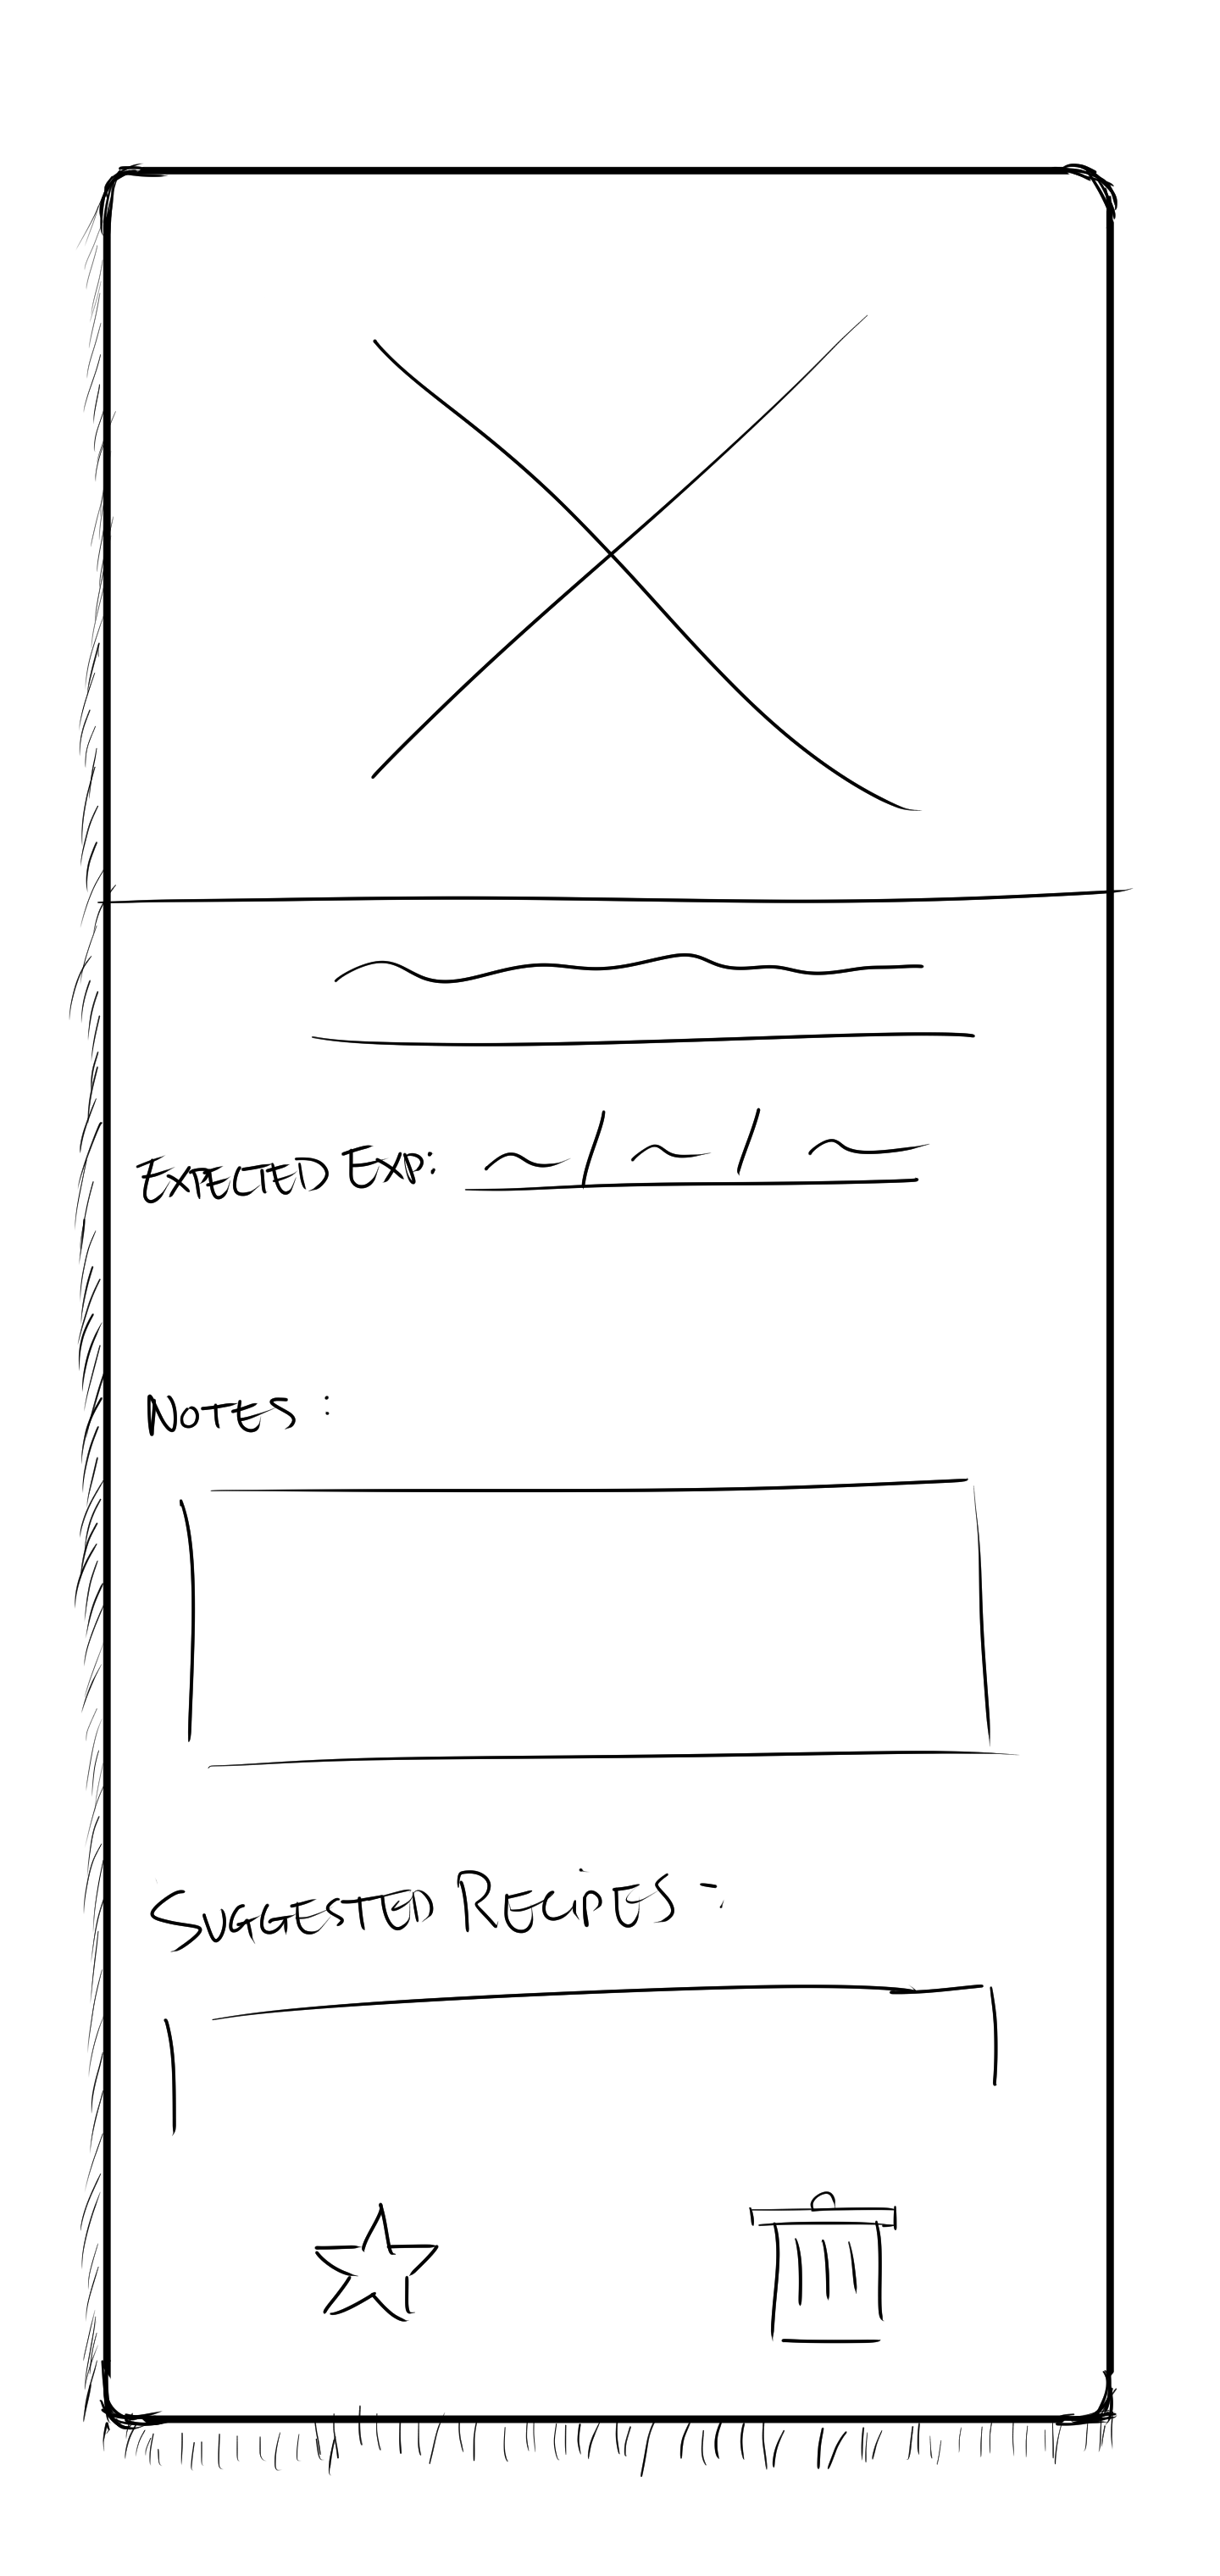 EXPECTED EXP:
NOTES :
SUGGESTED RECIPES -